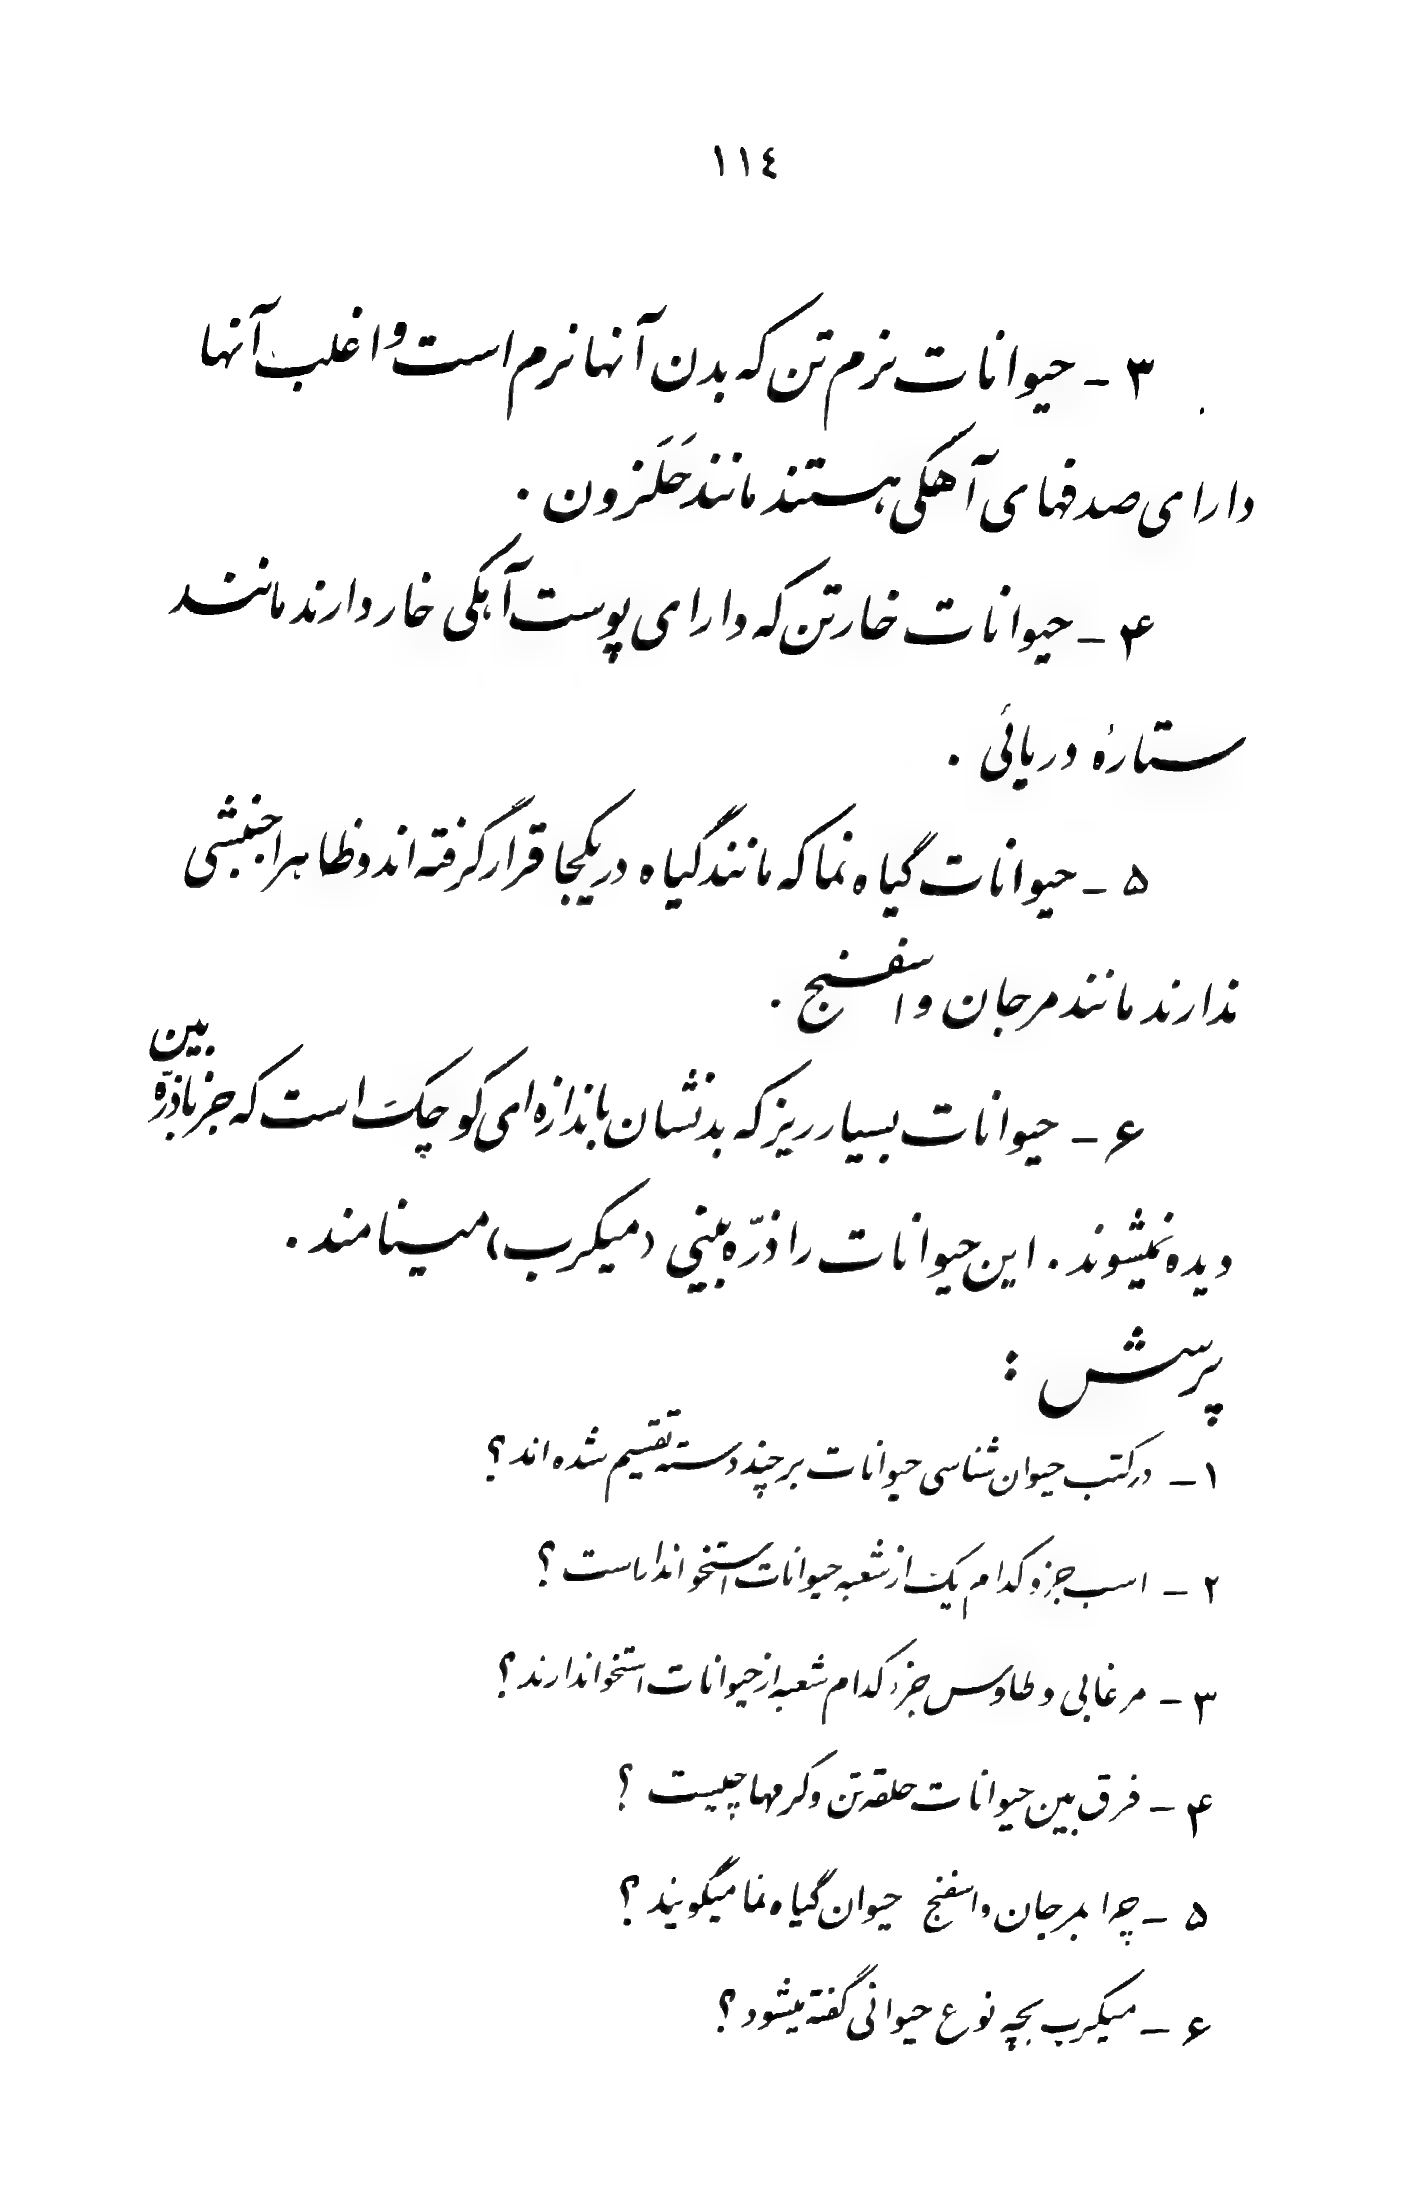 ۱۱٤
۳ - حیوانات نرم تن که بدن آنها نرم است و اغلب آنها
دارای صدفهای آهکی هستند مانند حَلَزون .
۴ - حیوانات خارتن که دارای پوست آهکی خار دارند مانند
ستارهٔ دریائی .
۵ - حیوانات گیاه نما که مانند گیاه دریکجا قرار گرفته اند و ظاهرا جنبشی
ندارند مانند مرجان و اسفنج .
۶ - حیوانات بسیار ریز که بدنشان باندازه ای کوچک است که جز با ذرّه بین
دیده نمیشوند . این حیوانات را ذرّه بینی (میکرب) مینامند .
پرسش :
۱ - در کتب حیوان شناسی حیوانات بر چند دسته تقسیم شده اند ؟
۲ - اسب جزو کدام یک از شعبه حیوانات استخواندار است ؟
۳ - مرغابی و طاوس جزء کدام شعبه از حیوانات استخواندارند ؟
۴ - فرق بین حیوانات حلقه تن و کرمها چیست ؟
۵ - چرا بمرجان و اسفنج حیوان گیاه نما میگویند ؟
۶ - میکرب بچه نوع حیوانی گفته میشود ؟